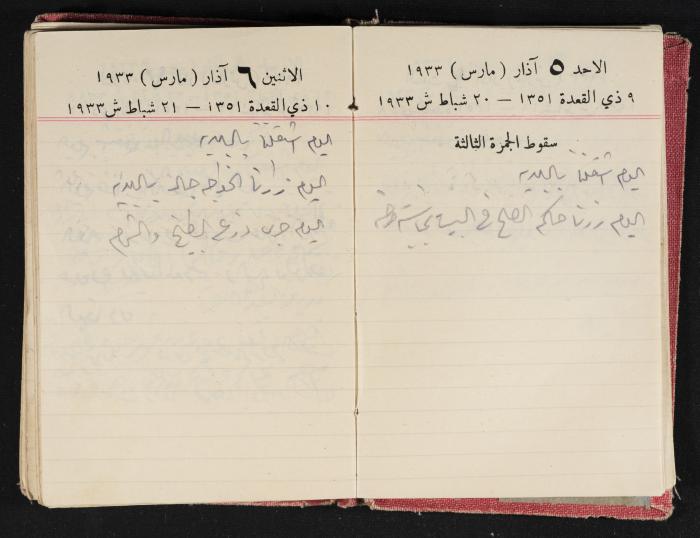 الاحد ٥ آذار (مارس) ١٩٣٣
٩ ذي القعدة ١٣٥١ — ٢٠ شباط ش ١٩٣٣
سقوط الجمرة الثالثة
اليوم شغلنا بالبياره
اليوم زرنا حاكم الصلح في البيت
الاثنين ٦ آذار (مارس) ١٩٣٣
١٠ ذي القعدة ١٣٥١ — ٢١ شباط ش ١٩٣٣
اليوم شغلنا بالبياره
اليوم زارنا الخواجه بالبياره
اليوم جرى زرع البطيخ والشمام